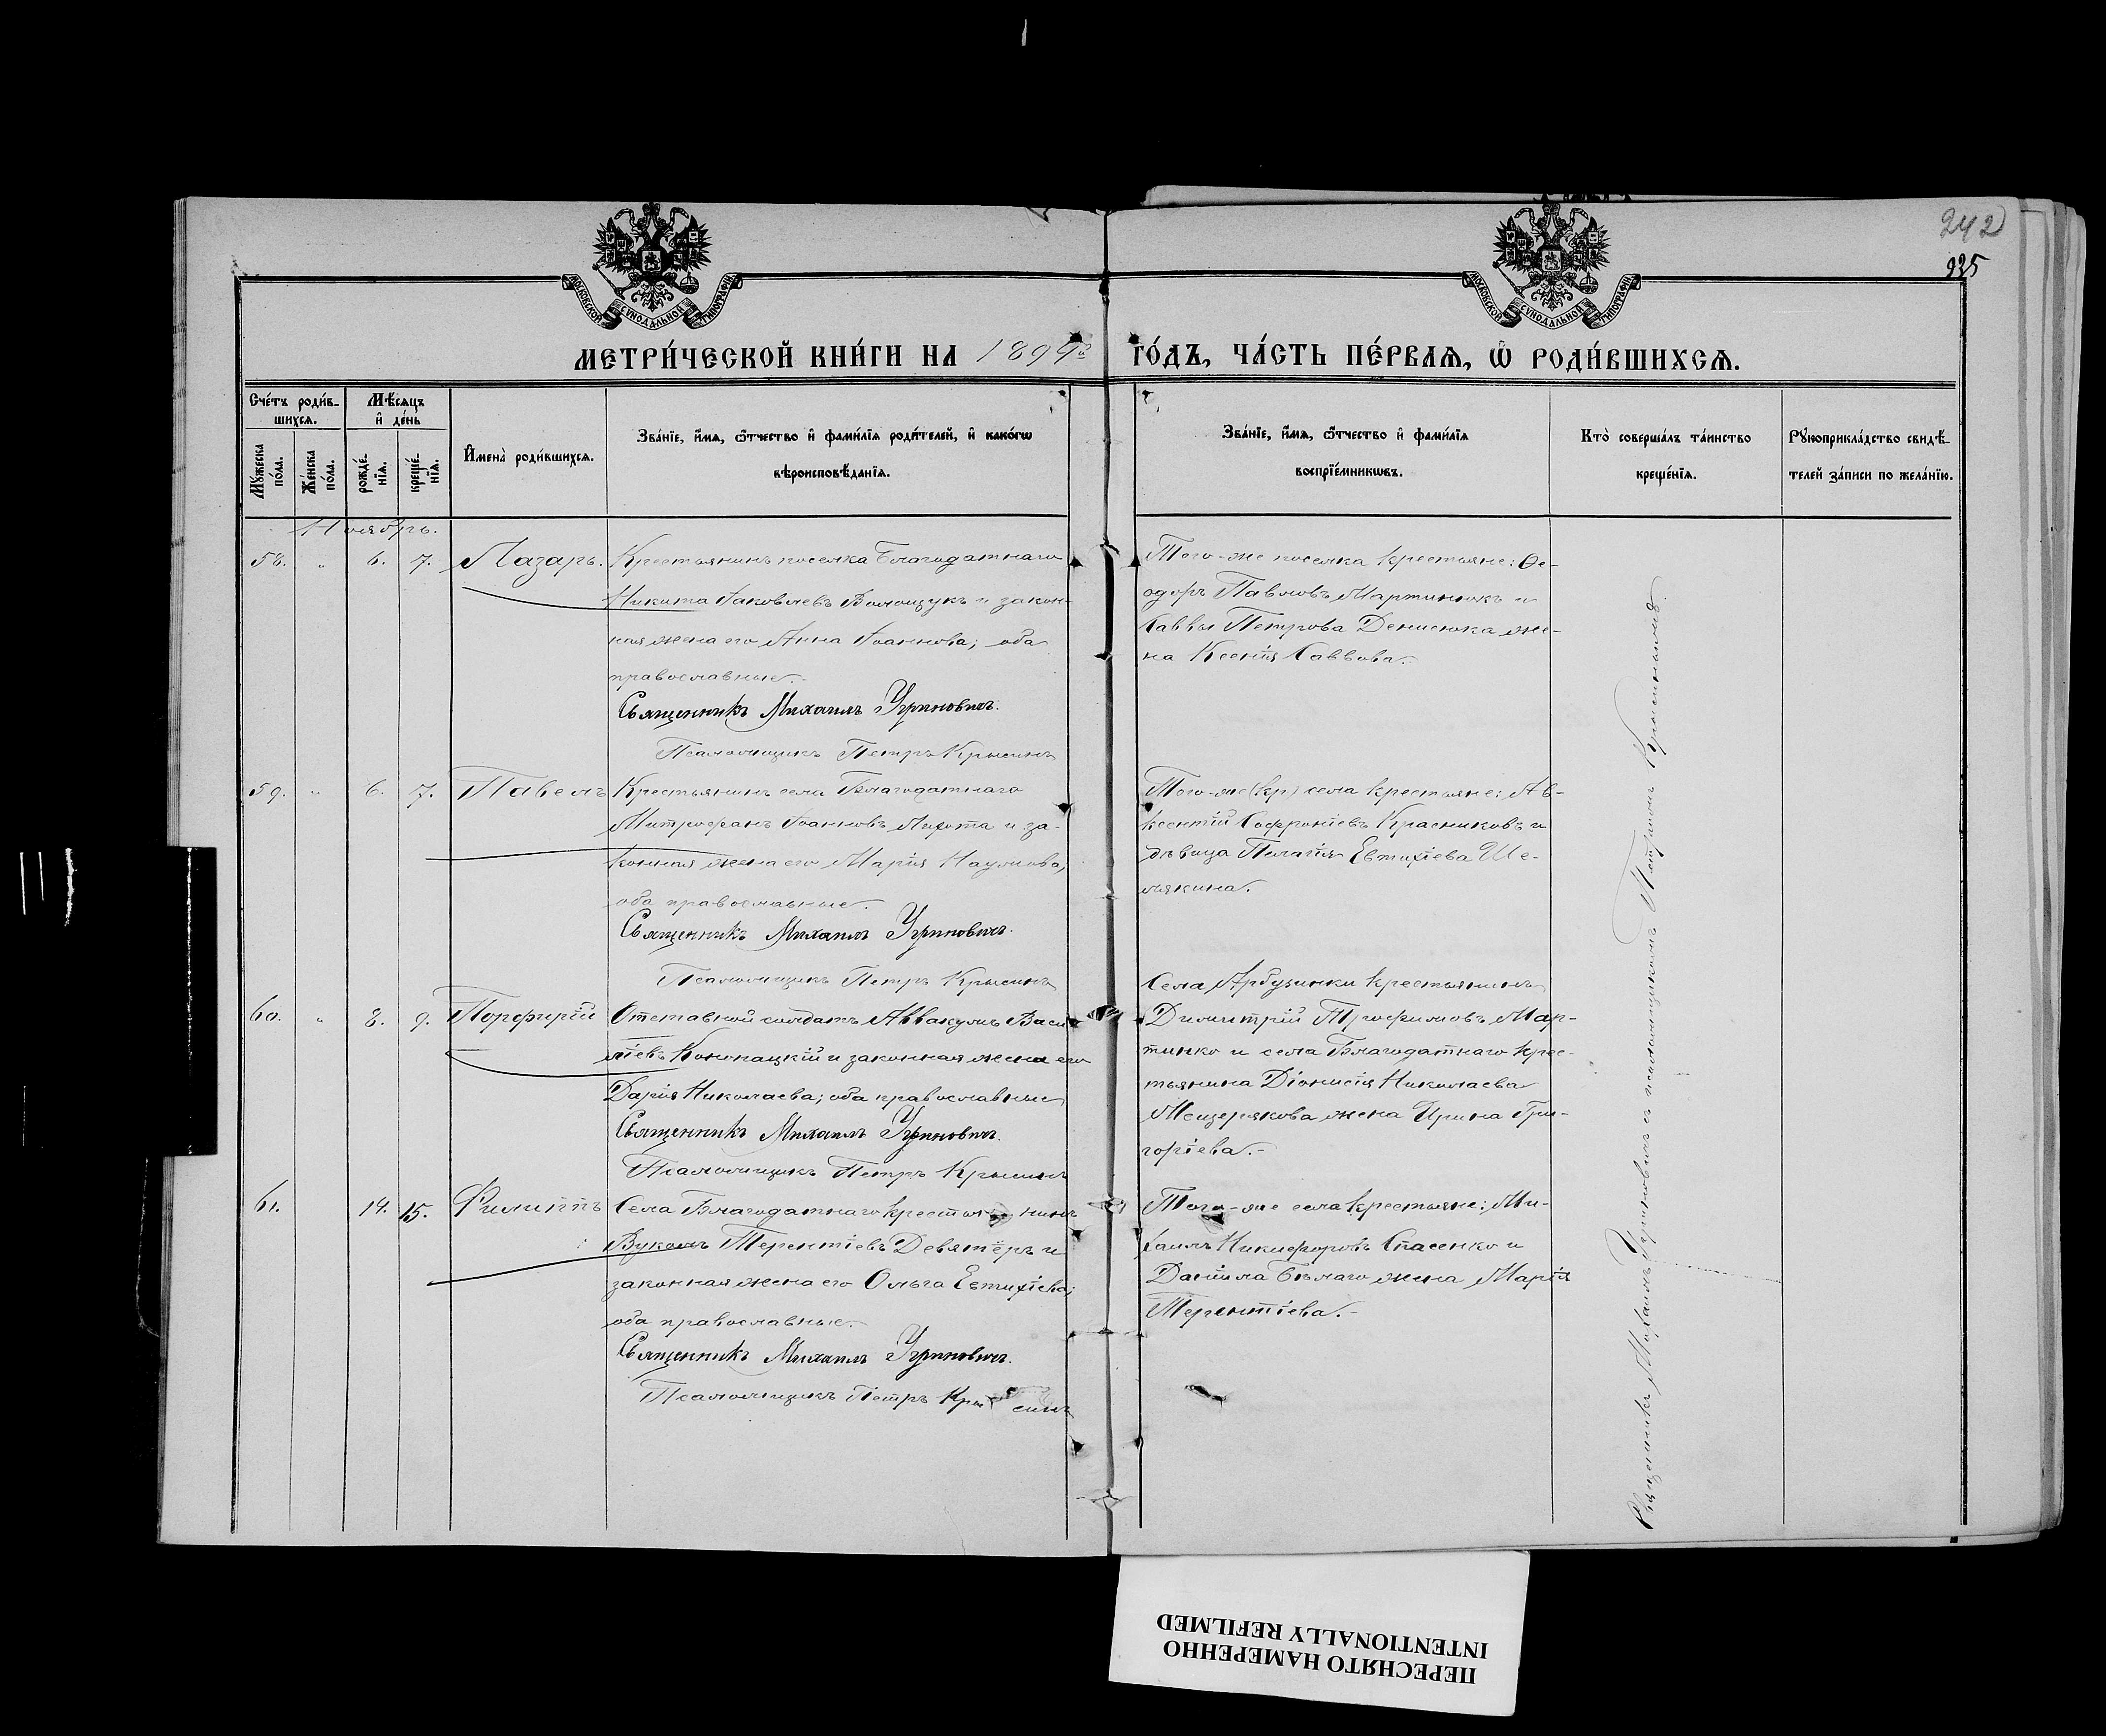 242
935
МОСКОВСКОЙ СѴНОДАЛЬНОЙ ТИПОГРАФІИ
МОСКОВСКОЙ СѴНОДАЛЬНОЙ ТИПОГРАФІИ
МЕТРИ́ЧЕСКОЙ КНИ́ГИ НА 1899й ГО́ДЪ, ЧА́СТЬ ПЕ́РВАѦ, Ѡ҆ РОДИ́ВШИХСѦ.
Сче́тъ роди́в-
шихсѧ.
Мѣ́сѧцъ
и҆ де́нь
Мꙋ́жеска по́ла.
Же́нска по́ла.
рожде́-
нїѧ.
креще́-
нїѧ.
И҆мена̀ роди́вшихсѧ.
Зва́нїе, и҆́мѧ, ѻ҆́тчество и҆ фами́лїѧ роди́телей, и҆ како́гѡ
вѣроисповѣ́данїѧ.
Зва́нїе, и҆́мѧ, ѻ҆́тчество и҆ фами́лїѧ
воспрїе́мникѡвъ.
Кто̀ соверша́лъ та́инство
креще́нїѧ.
Рꙋкоприкла́дство свидѣ́-
телей за́писи по жела́нїю.
Ноябрь.
58. " 6. 7. Лазарь. Крестьянинъ поселка Благодатнаго
Никита Іаковлевъ Волощукъ и закон-
ная жена его Анна Іоаннова; оба
православные.-
Священникъ Михаилъ Угриновичъ.
Псаломщикъ Петръ Крысинъ
Того-же поселка крестьяне: Ѳе-
одоръ Павловъ Мартинюкъ и
Саввы Петрова Денисюка же-
на Ксенія Саввова.-
59. " 6. 7. Павелъ Крестьянинъ села Благодатнаго
Митрофанъ Іоанновъ Лихота и за-
конная жена его Марія Наумова;
оба православные.
Священникъ Михаилъ Угриновичъ.
Псаломщикъ Петръ Крысинъ
Того-же (кр) села крестьяне: Ав-
ксентій Софроніевъ Красниковъ и
дѣвица Пелагія Евтихіева Ше-
мякина.
60. " 8. 9. Порфирій Отставной солдатъ Аввакумъ Васи-
ліевъ Кононацкій и законная жена его
Дарія Николаева; оба православные
Священникъ Михаилъ Угриновичъ.
Псаломщикъ Петръ Крысинъ
Села Арбузинки крестьянинъ
Димитрій Трофимовъ Мар-
тинко и села Благодатнаго крес-
тьянина Діонисія Николаева
Мещерякова жена Ирина Гри-
горіева.-
61. 14. 15. Филиппъ Села Благодатнаго крестьянинъ
Вуколъ Терентіевъ Девятёръ и
законная жена его Ольга Евтихіева;
оба православные.-
Священникъ Михаилъ Угриновичъ.
Псаломщикъ Петръ Крысинъ
Того-же села крестьяне: Ми-
хаилъ Никифоровъ Спасенко и
Даніила Бѣлаго жена Марія
Терентіева.-
Священникъ Михаилъ Угриновичъ съ псаломщикомъ Петромъ Крысинымъ.
ПЕРЕСНЯТО НАМЕРЕННО
INTENTIONALLY REFILMED